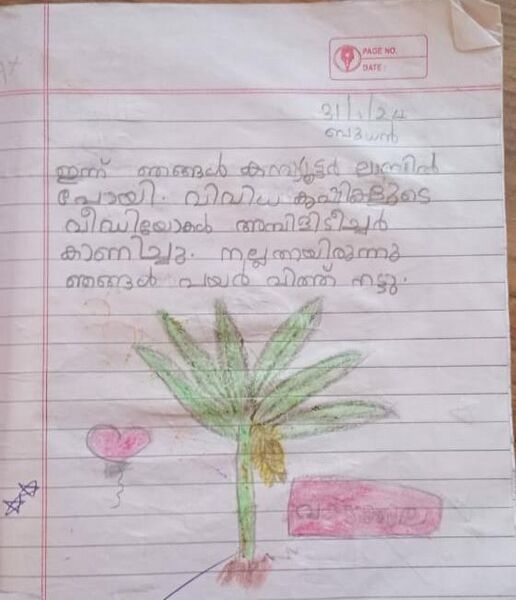 PAGE NO.
DATE:
31/1/24
ബുധൻ
ഇന്ന് ഞങ്ങൾ കമ്പ്യൂട്ടർ ലാബിൽ
പോയി. വിവിധ കൃഷികളുടെ
വീഡിയോകൾ അമ്പിളിടീച്ചർ
കാണിച്ചു. നല്ലതായിരുന്നു
ഞങ്ങൾ പയർ വിത്ത് നട്ടു.